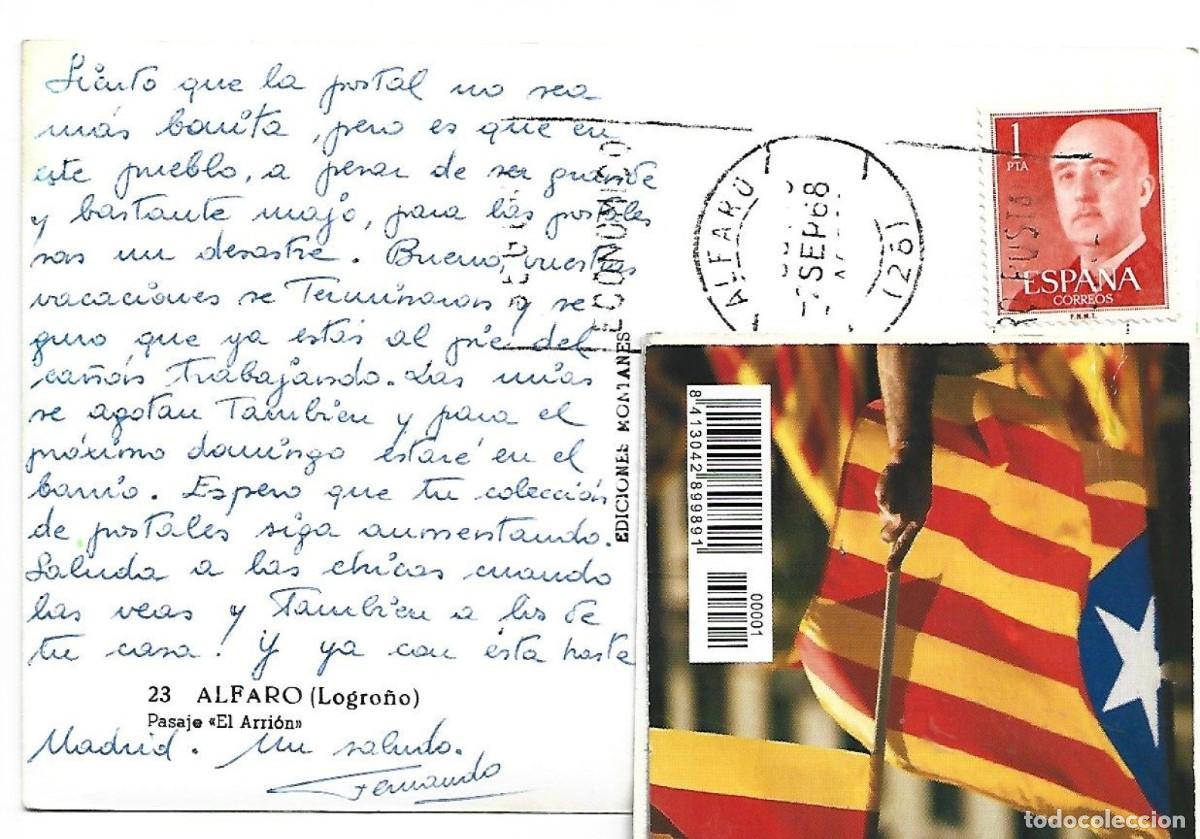 Siento que la postal no sea
más bonita, pero es que en
este pueblo, a pesar de ser grande
y bastante majo, para las postales
son un desastre. Bueno, vuestras
vacaciones se terminaron y se
guro que ya estás al pie del
cañón trabajando. Las mías
se agotan también y para el
próximo domingo estaré en el
barrio. Espero que tu colección
de postales siga aumentando.
Saluda a las chicas cuando
las veas y también a los de
tu casa. Y ya con ésta hasta
23 ALFARO (Logroño)
Pasaje «El Arrión»
Madrid. Un saludo.
Fernando
EDICIONES MONTAÑES
ALFARO
SEP 68
(281
1
PTA
ESPAÑA
CORREOS
F.N.M.T.
8413042899891
00001
todocoleccion